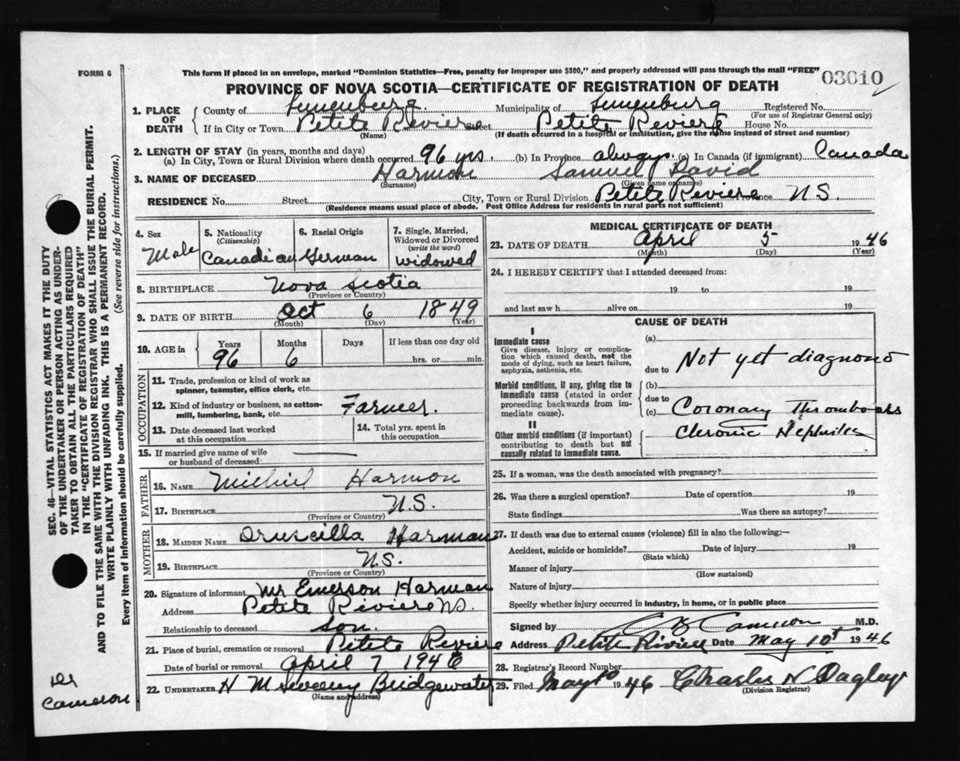 FORM 6
This form if placed in an envelope, marked "Dominion Statistics—Free, penalty for improper use $300," and properly addressed will pass through the mail "FREE"
03010
PROVINCE OF NOVA SCOTIA—CERTIFICATE OF REGISTRATION OF DEATH
1. PLACE OF DEATH County of Lunenburg Municipality of Lunenburg Registered No.
(For use of Registrar General only)
If in City or Town Petite Reviere Street Petite Reviere House No.
(Name) (If death occurred in a hospital or institution, give the name instead of street and number)
2. LENGTH OF STAY (in years, months and days)
(a) In City, Town or Rural Division where death occurred 96 yrs. (b) In Province always (c) In Canada (if immigrant) Canada
3. NAME OF DECEASED Harmon Samuel David
(Surname) (Given name or names)
RESIDENCE No. Street City, Town or Rural Division Petite Reviere Province N.S.
(Residence means usual place of abode. Post Office Address for residents in rural parts not sufficient)
4. Sex
Male
5. Nationality
(Citizenship)
Canadian
6. Racial Origin
German
7. Single, Married, Widowed or Divorced
(write the word)
widowed
8. BIRTHPLACE Nova Scotia
(Province or Country)
9. DATE OF BIRTH Oct 6 1849
(Month) (Day) (Year)
10. AGE in Years Months Days If less than one day old
96 6 hrs. or min.
OCCUPATION
11. Trade, profession or kind of work as spinner, teamster, office clerk, etc.
12. Kind of industry or business, as cotton-mill, lumbering, bank, etc. Farmer.
13. Date deceased last worked at this occupation
14. Total yrs. spent in this occupation
15. If married give name of wife or husband of deceased
FATHER
16. NAME Harmon
17. BIRTHPLACE N.S.
(Province or Country)
MOTHER
18. MAIDEN NAME Druscilla Harman
19. BIRTHPLACE N.S.
(Province or Country)
20. Signature of informant Mr Emerson Harman
Address Petite Riviere N.S.
Relationship to deceased son.
21. Place of burial, cremation or removal Petite Reviere
Date of burial or removal April 7 1946
22. UNDERTAKER Bridgewater
(Name and address)
MEDICAL CERTIFICATE OF DEATH
23. DATE OF DEATH April 5 1946
(Month) (Day) (Year)
24. I HEREBY CERTIFY that I attended deceased from:
19 to 19
and last saw h alive on 19
CAUSE OF DEATH
I
Immediate cause
Give disease, injury or complication which caused death, not the mode of dying, such as heart failure, asphyxia, asthenia, etc.
Morbid conditions, if any, giving rise to immediate cause (stated in order proceeding backwards from immediate cause).
II
Other morbid conditions (if important) contributing to death but not causally related to immediate cause.
(a)
due to Not yet diagnosed
(b)
due to
(c) Coronary Thrombosis
Chronic Nephritis
25. If a woman, was the death associated with pregnancy?
26. Was there a surgical operation? Date of operation 19
State findings Was there an autopsy?
27. If death was due to external causes (violence) fill in also the following:—
Accident, suicide or homicide? Date of injury 19
(State which)
Manner of injury
(How sustained)
Nature of injury
Specify whether injury occurred in industry, in home, or in public place
Signed by Cameron M.D.
Address Petite Riviere Date May 10th 1946
28. Registrar's Record Number
29. Filed May 10 1946 Charles N Dagley
(Division Registrar)
SEC. 46—VITAL STATISTICS ACT MAKES IT THE DUTY OF THE UNDERTAKER OR PERSON ACTING AS UNDERTAKER TO OBTAIN ALL THE PARTICULARS REQUIRED IN THE "CERTIFICATE OF REGISTRATION OF DEATH" AND TO FILE THE SAME WITH THE DIVISION REGISTRAR WHO SHALL ISSUE THE BURIAL PERMIT.
WRITE PLAINLY WITH UNFADING INK. THIS IS A PERMANENT RECORD.
Every item of information should be carefully supplied. (See reverse side for instructions.)
Dr
Cameron